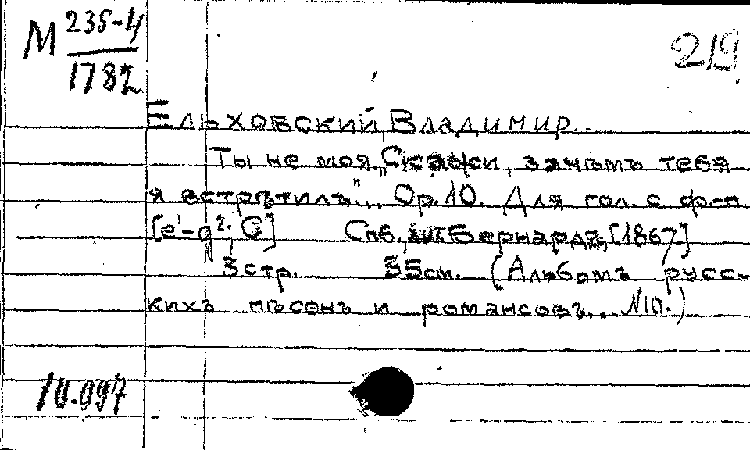 М 235-4
1782
219
Ельховский Владимир.
Ты не моя. „Скажи, зачѣмъ тебя
я встрѣтилъ". Op. 10. Для гол. с ф-п
[e¹-g². G] Спб. Бернардъ, [1867]
3 стр. 35 см. (Альбомъ русс-
кихъ пѣсенъ и романсовъ. N 10.)
10.097